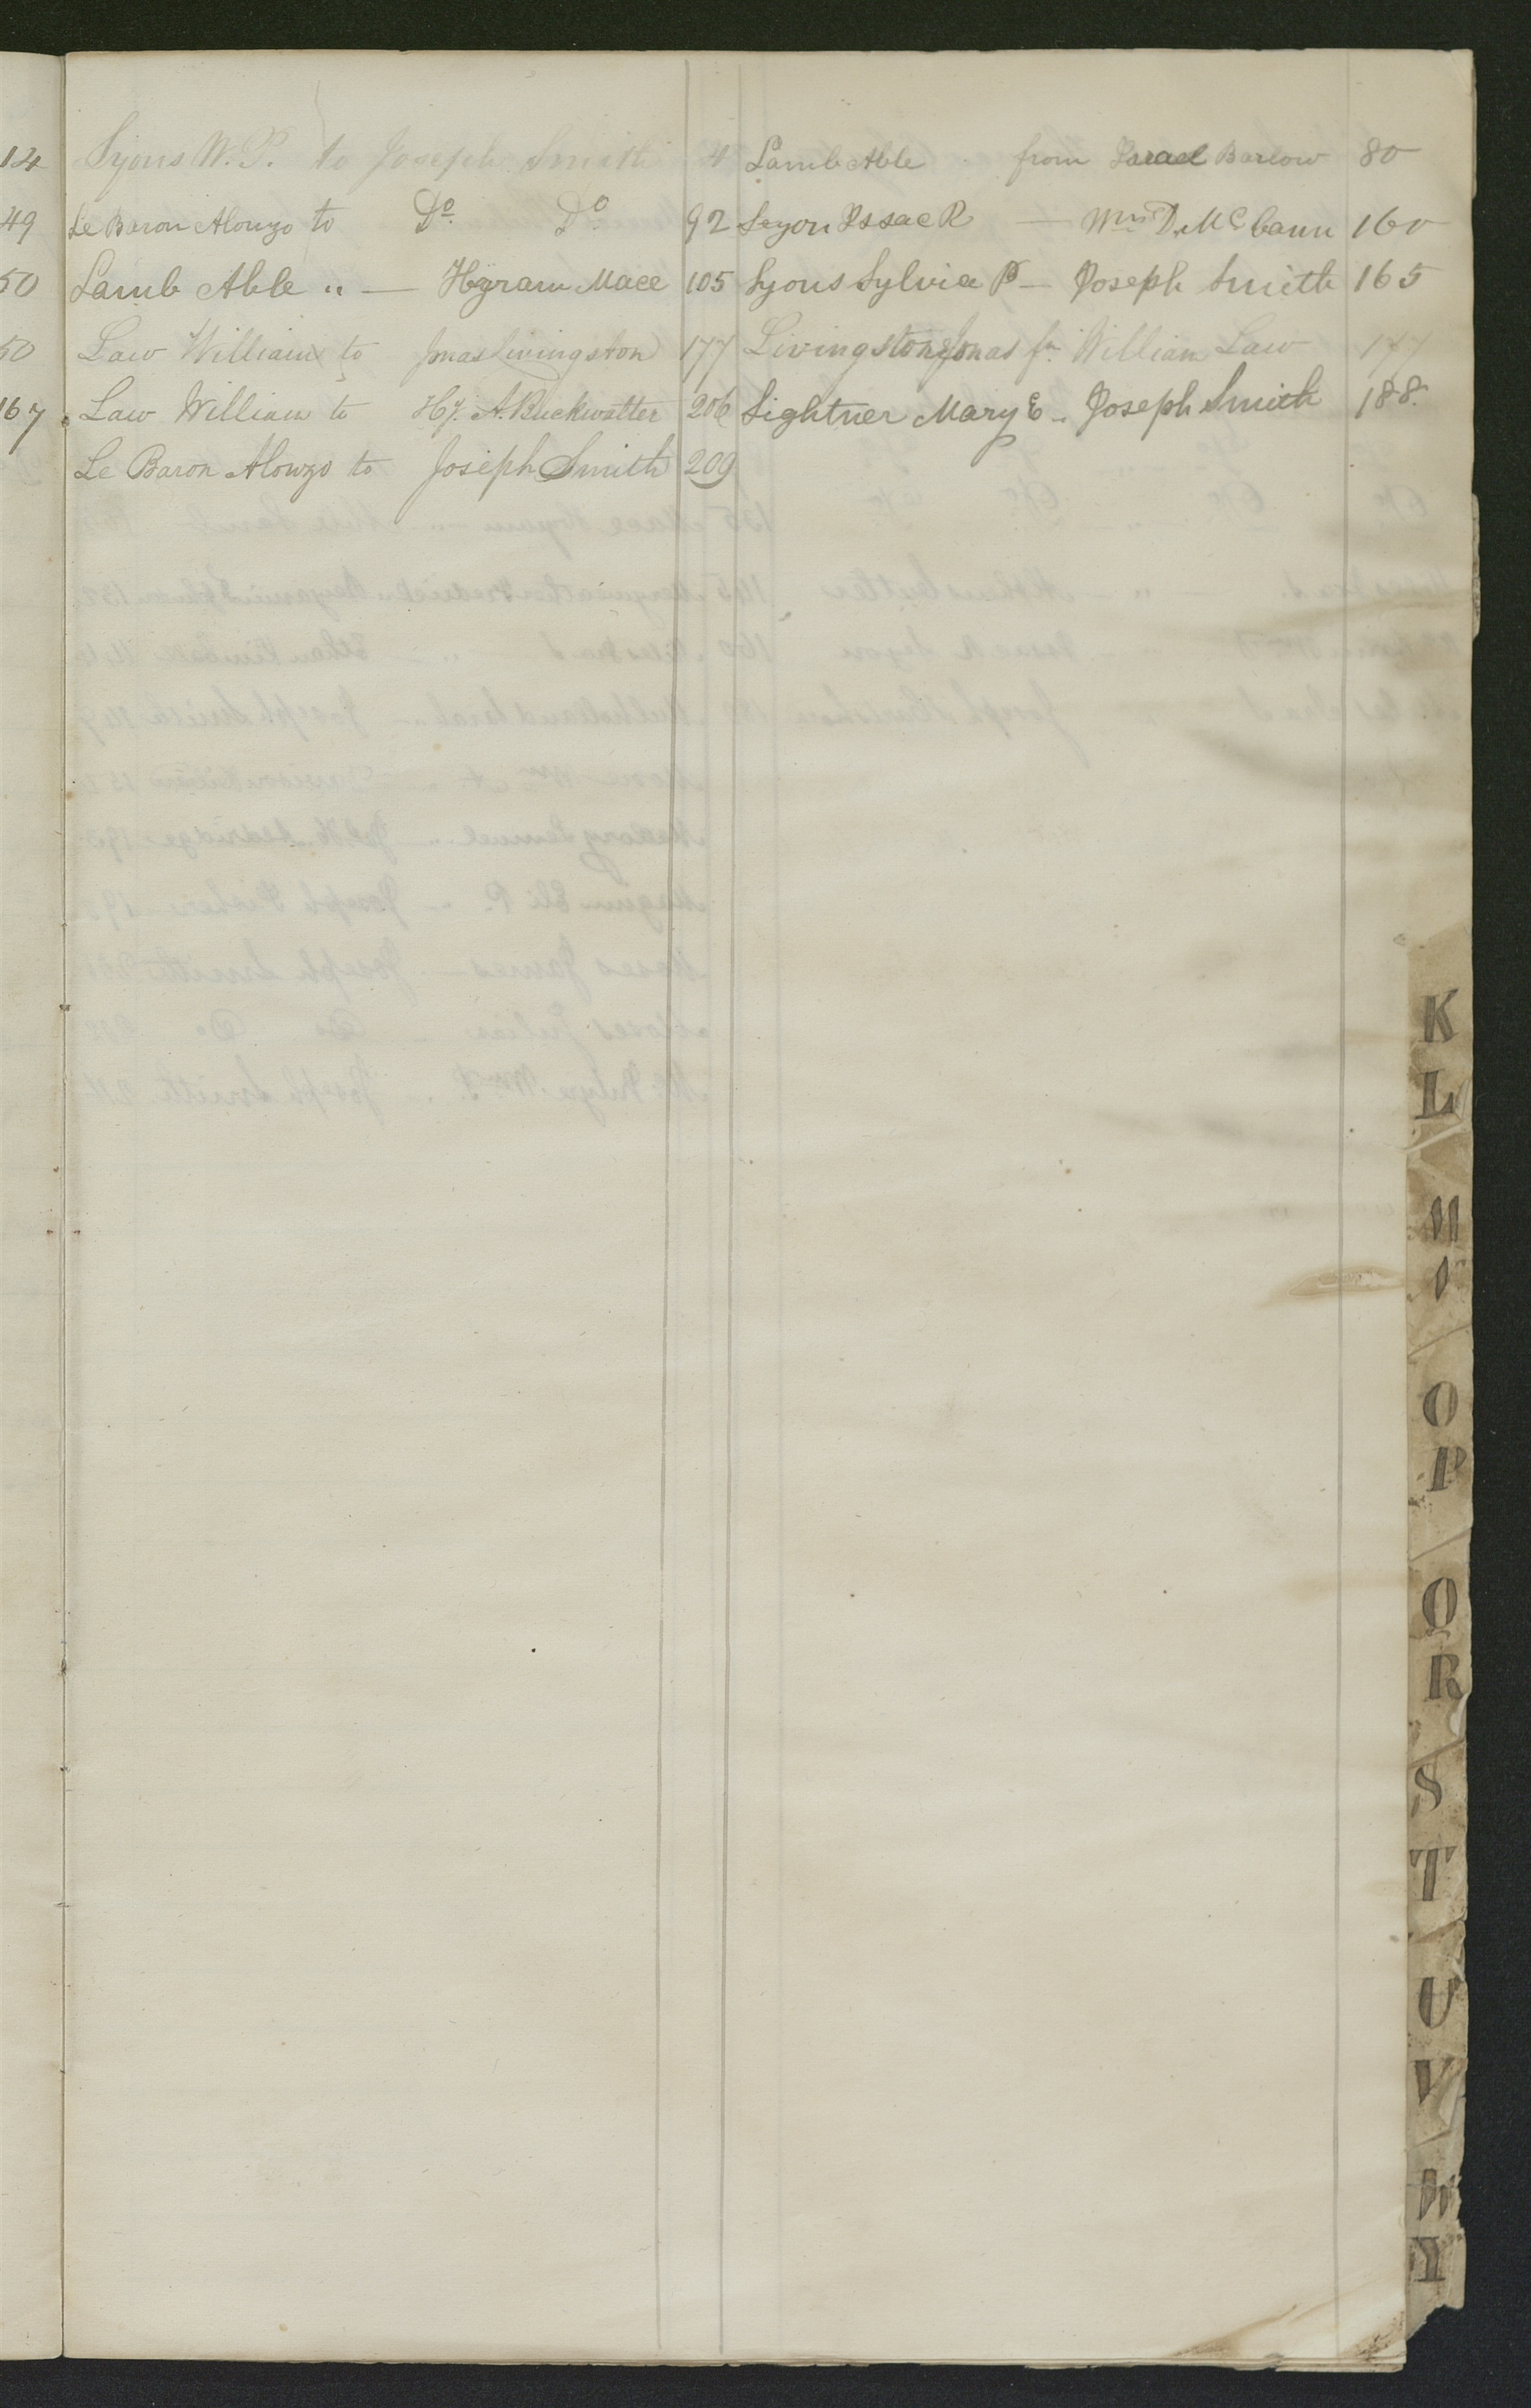 14
49
50
50
167
Lyons W. P. to Joseph Smith 4
Le Baron Alonzo to Do Do 92
Lamb Able " — Hyram Mace 105
Law William to Jonas Livingston 177
Law William to Hy. A. Buckwalter 206
Le Baron Alonzo to Joseph Smith 209
Lamb Able from Israel Barlow 80
Leyon Issac R — Wm D. McCann 160
Lyons Sylvia P — Joseph Smith 165
Livingston Jonas fm William Law 177
Lightner Mary E - Joseph Smith 188.
K
L
O
P
Q
R
S
T
U
V
W
Y